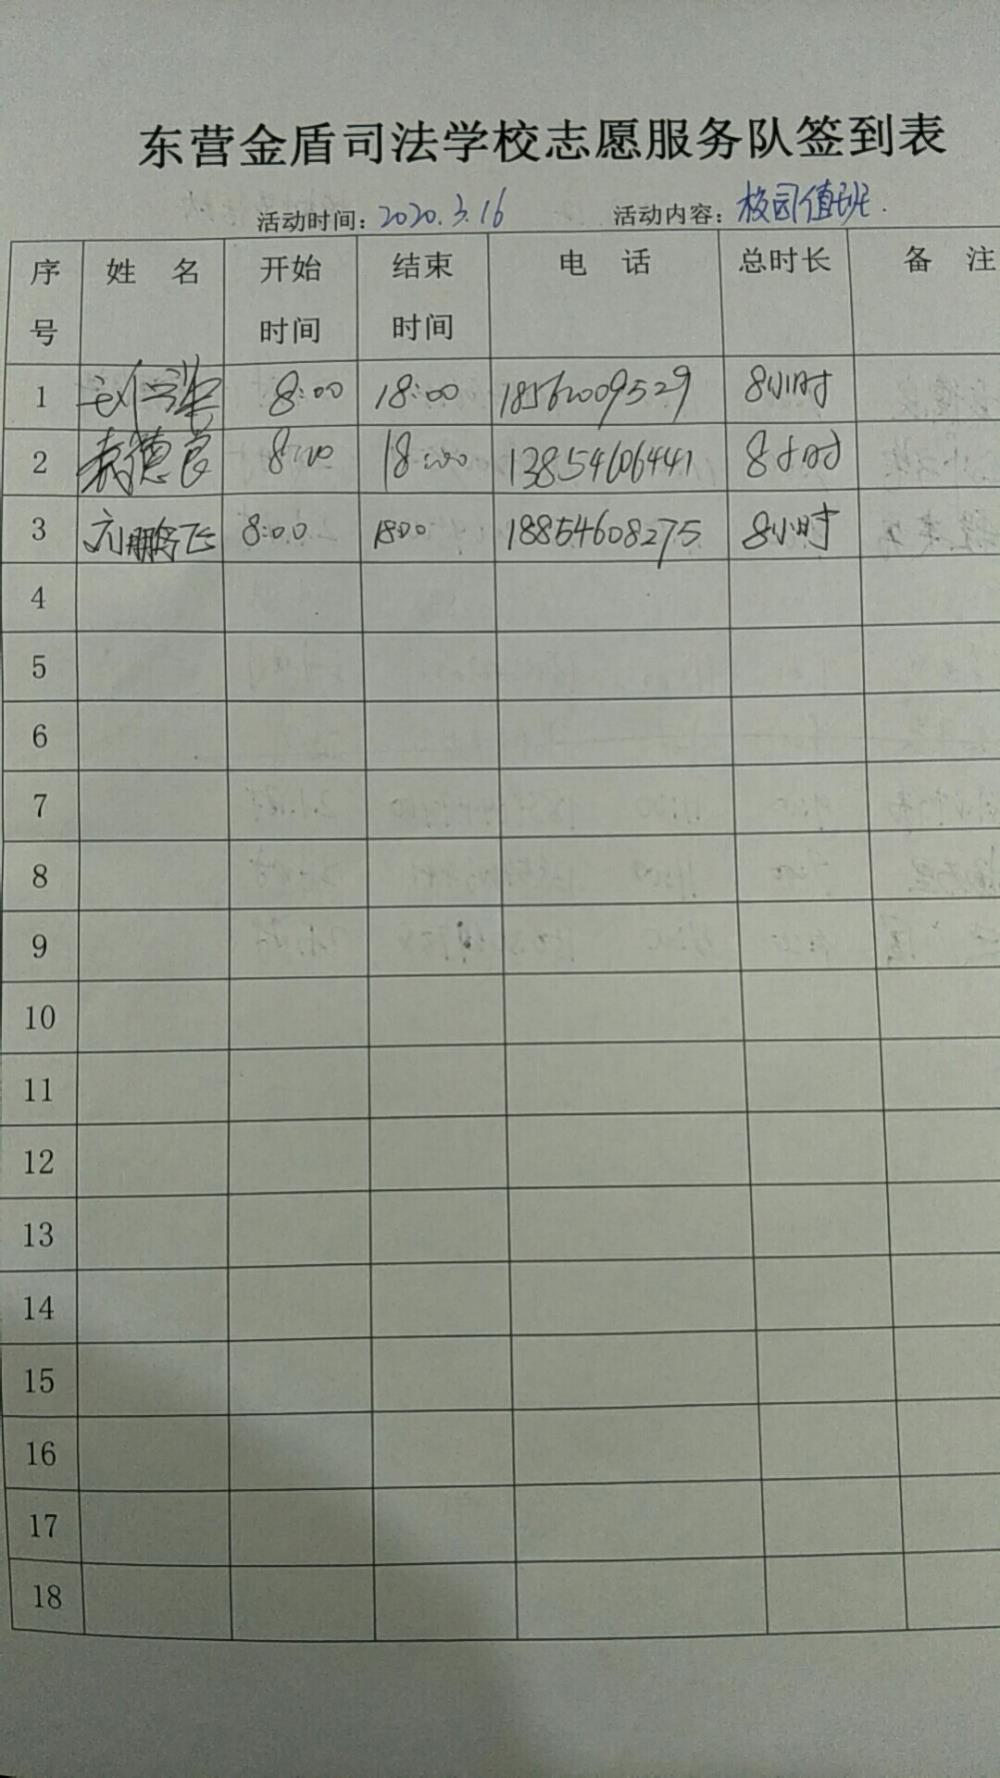 东营金盾司法学校志愿服务队签到表
活动时间：2020.3.16 活动内容：校园值班.
序号 姓 名 开始时间 结束时间 电 话 总时长 备 注
1 8:00 18:00 18562009529 8小时
2 袁德良 8:00 18:00 13854606441 8小时
3 刘鹏飞 8:00 18:00 18854608275 8小时
4
5
6
7
8
9
10
11
12
13
14
15
16
17
18